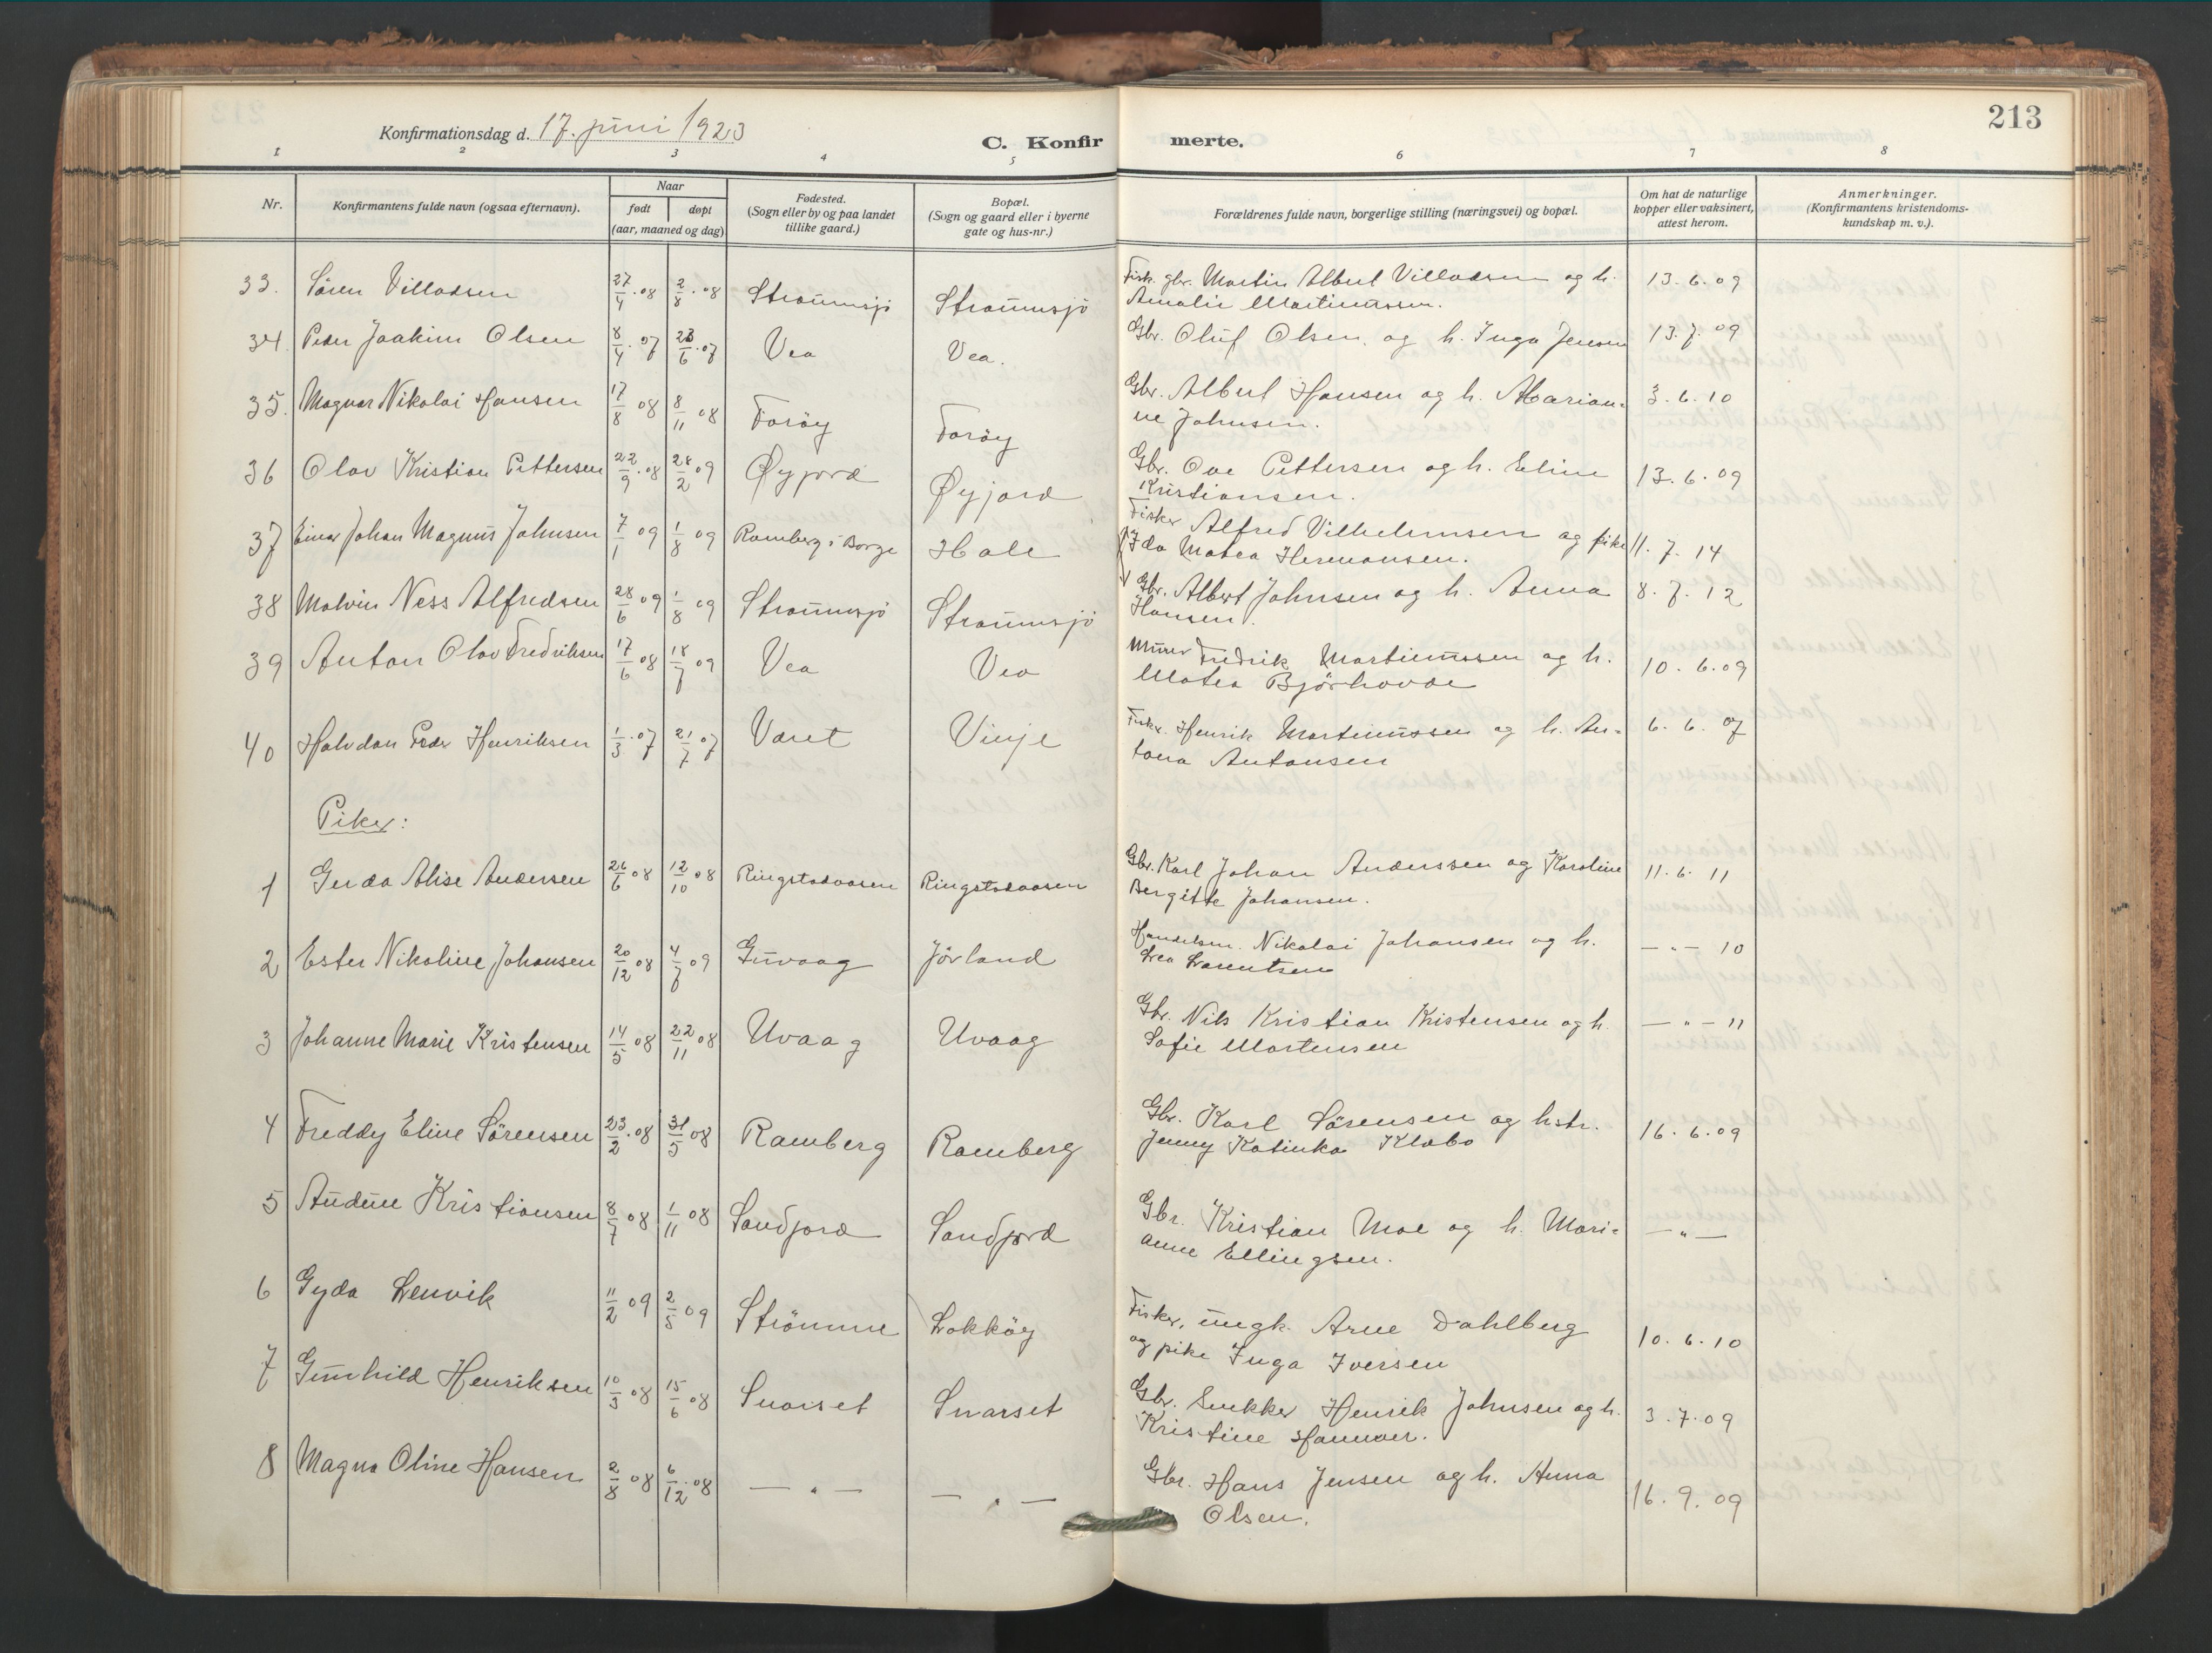 213
Konfirmationsdag d. 17. juni 1923
C. Konfirmerte.
1 2 3 4 5 6 7 8
Nr.
Konfirmantens fulde navn (ogsaa efternavn).
Naar
født døpt
(aar, maaned og dag)
Fødested.
(Sogn eller by og paa landet
tillike gaard.)
Bopæl.
(Sogn og gaard eller i byerne
gate og hus-nr.)
Forældrenes fulde navn, borgerlige stilling (næringsvei) og bopæl.
Om hat de naturlige
kopper eller vaksinert,
attest herom.
Anmerkninger.
(Konfirmantens kristendoms-
kundskap m. v.).
33. Sören Villadsen 27/4.08 2/8.08 Straumsjö Straumsjö Fisk. gbr. Martin Albert Villadsen og h. 13.6.09
Amalie Martinussen.
34. Peder Joakim Olsen 8/4.07 23/6.07 Vea Vea. Gbr. Oluf Olsen og h. Inga Jensen 13.7.09
35. Magnar Nikolai Hansen 17/8 08 8/11 08 Foröy Foröy Gbr. Albert Hansen og h. Marian- 3.6.10
ne Johnsen.
36 Olav Kristian Pettersen 22/9.08 28/2 09 Øyjord Øyjord Gbr. Ove Pettersen og h. Eline 13.6.09
Kristiansen.
37 Einar Johan Magnus Johnsen 7/1 09 1/8 09 Ramberg i Borge Hole Fisker Alfred Vilhelmsen og pike 11.7.14
Ida Matea Hermansen.
38 Malvin Ness Alfredsen 28/6 09 1/8 09 Straumsjö Straumsjö Gbr. Albert Johnsen og h. Anna 8.7.12
Hansen.
39 Anton Olav Fredriksen 17/6 08 18/7 09 Vea Vea Murer Fredrik Martinussen og h. 10.6.09
Matea Bjørhovde
40 Halvdan Peder Henriksen 1/3.07 21/7 07 Været Vinje Fisker. Henrik Martinussen og h. An- 6.6.07
tona Antonsen
Piker:
1 Gerda Alise Andersen 26/6 08 12/10 08 Ringstadaasen Ringstadaasen Gbr. Karl Johan Anderssen og Karoline 11.6.11
Bergitte Johansen.
2 Ester Nikoline Johansen 20/12 08 4/7 09 Guvaag Jörland Handelsm. Nikolai Johansen og h. — " — 10
Lea Larentsen
3 Johanne Marie Kristensen 14/5 08 22/11 08 Uvaag Uvaag Gbr. Nils Kristian Kristensen og h. — " — 11
Sofie Mortensen
4 Freddy Eline Sörensen 23/2.08 31/5 08 Ramberg Ramberg Gbr. Karl Sörensen og hstr. 16.6.09
Jenny Katinka Klæbo
5 Audine Kristiansen 8/7 08 1/11 08 Sandjord Sandjord Gbr. Kristian Moe og h. Mari- — " —
anne Ellingsen.
6 Gyda Lenvik 11/2 09 2/5 09 Strömme Lokköy Fisker, ungk. Arne Dahlberg 10.6.10
og pike Inga Iversen
7 Gunhild Henriksen 10/3 08 15/6 08 Snarset Snarset Gbr. Snekker Henrik Johnsen og h. 3.7.09
Kristine Hammer.
8 Magna Oline Hansen 2/8 08 6/12.08 — " — — " — Gbr. Hans Jensen og h. Anna 16.9.09
Olsen.